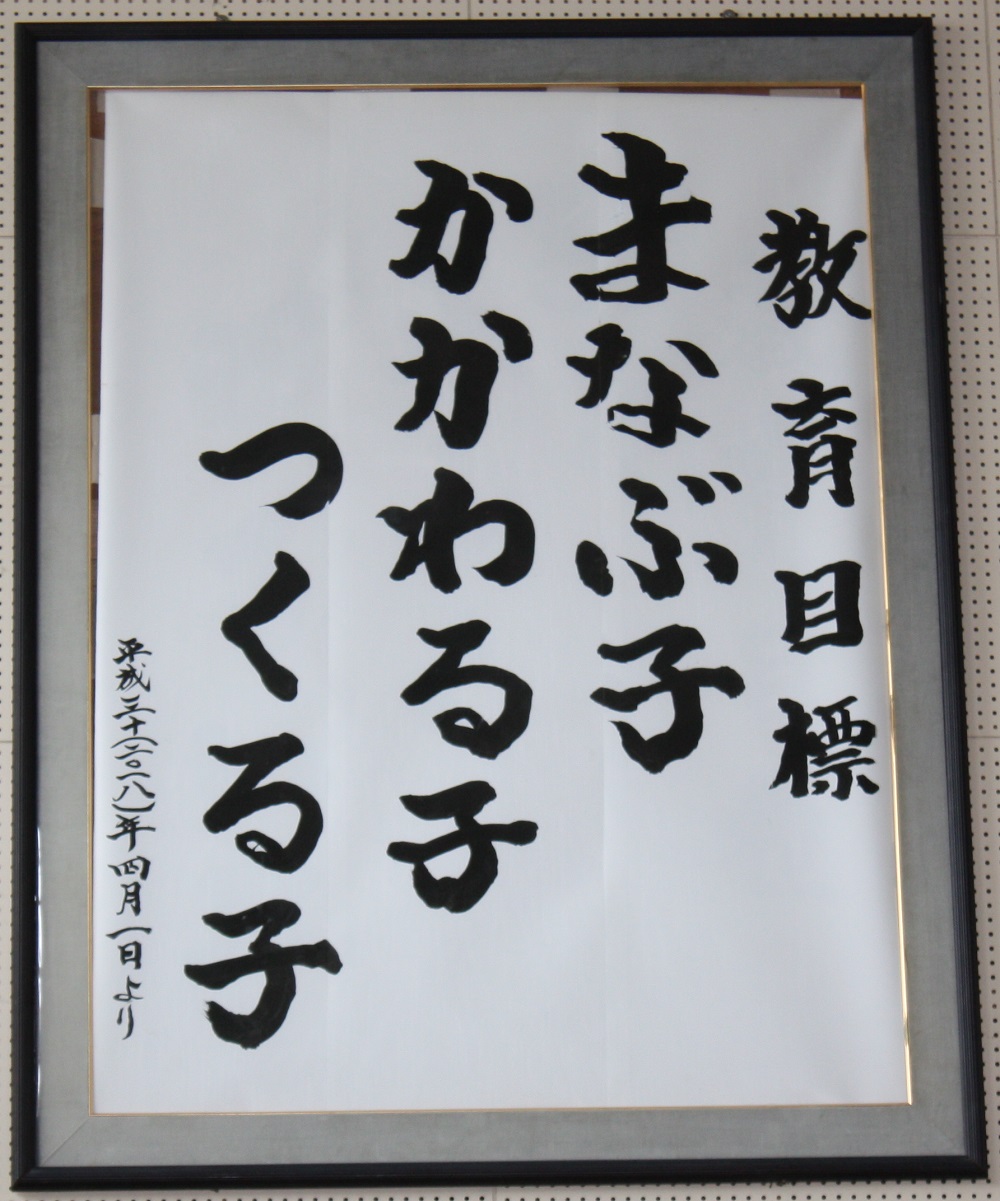 教育目標
まなぶ子
かかわる子
つくる子
平成三十(二〇一八)年四月一日より